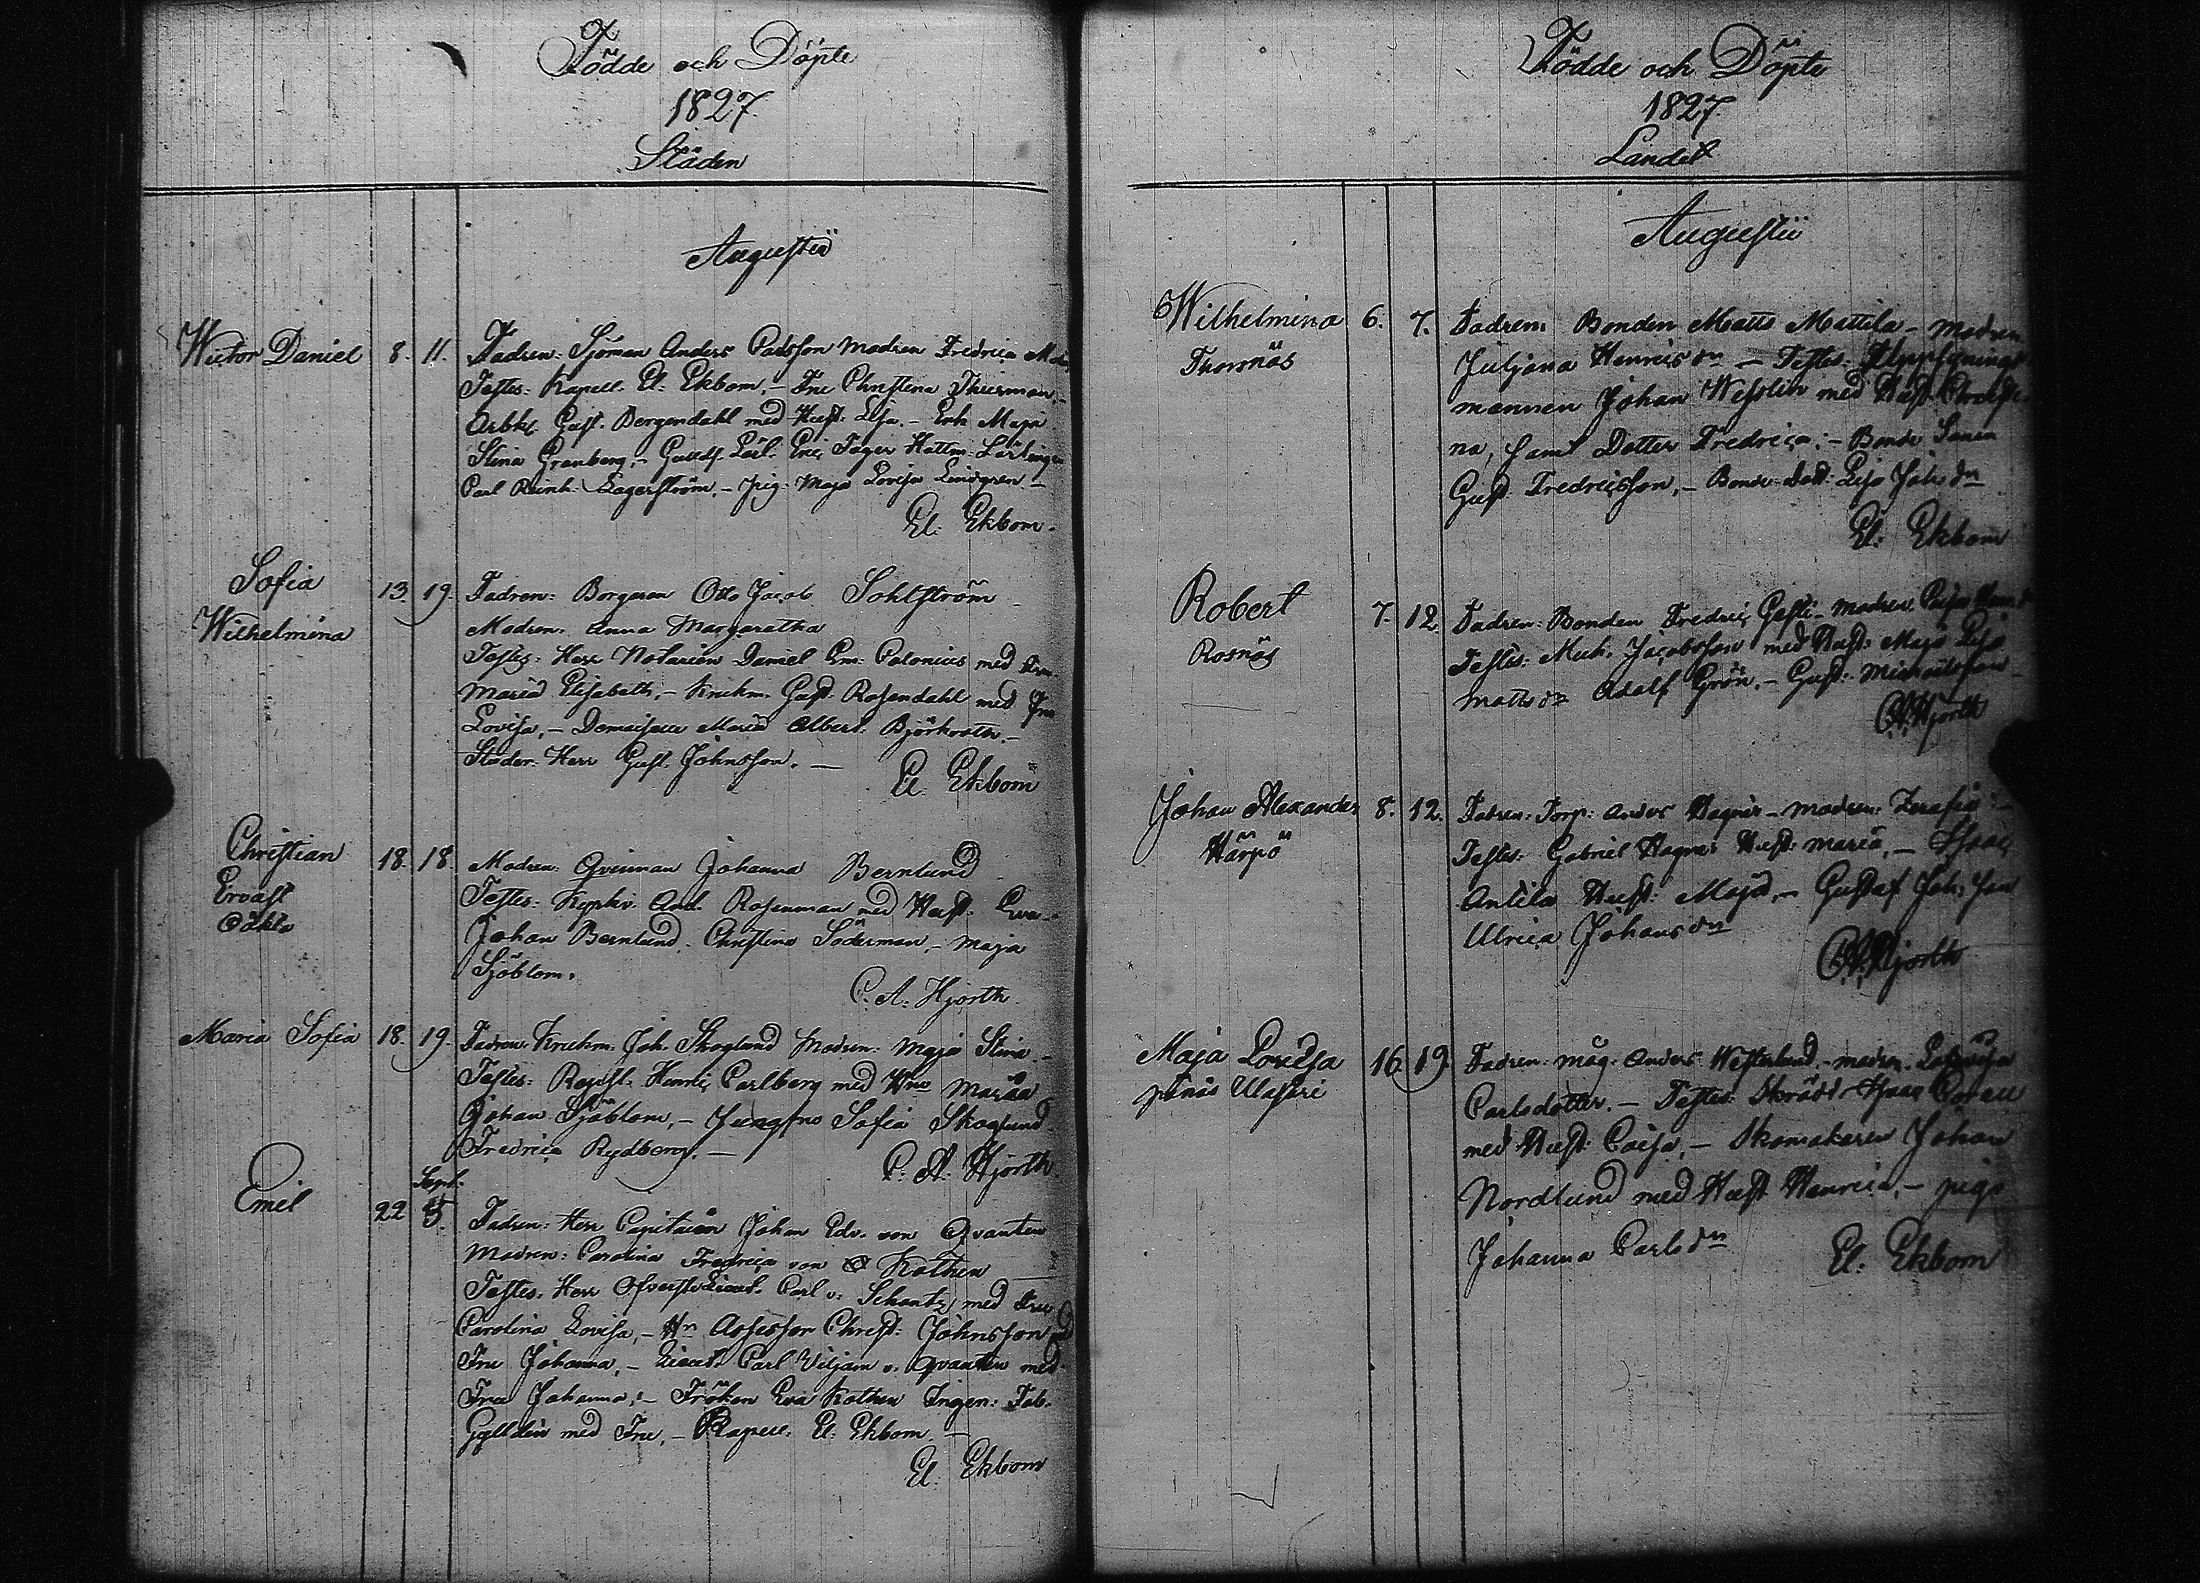 Födde och Döpte
1827.
Staden
Augusti
Victor Daniel 8. 11. Fadren: Sjöman Anders Carlsson Modren Fredrica
Testes: Kapell. El. Ekbom, – Fru Christina Thurman, –
Arbk. Gust. Bergendahl med Hust. Lisa. – Enk. Maja
Stina Granberg, – Guldsm. Lärl. Eric Hattm. Lärlingen
Carl Reinh. Lagerström, – Pig. Maja Lovisa Lindgren. –
El. Ekbom.
Sofia 13. 19. Fadren: Borgaren Otto Jacob Sohlström
Wilhelmina Modren: Anna Margaretha
Testes: Herr Notarien Daniel Em. Calonius med Fru
Maria Elisabeth, – Gust. Rosendahl med Fru
Lovisa, – Demoiselle Maria Albert. Björkroth, –
Studer. Herr Gust. Johnsson. –
El. Ekbom
Christian 18. 18. Modren: Qvinnan Johanna Bernlund
Ervast Testes: And. Rosenman med Hust. Eva –
oäkta Johan Bernlund. Christina Söderman, – Maja
Sjöblom.
C. A. Hjorth.
Maria Sofia 18. 19. Fadren: Joh. Skoglund Modren: Maja Stina –
Testes: Henric Carlberg med Maria
Johan Sjöblom, – Jungfru Sofia Skoglund
Fredrica Rydberg. –
C. A. Hjorth.
Sept.
Emil 22 5. Fadren: Herr Capitainen Johan Edv. von Qvanten
Modren: Carolina Fredrica von Kothen
Testes: Herr Öfverste Lieut. Carl v. Schantz med Fru
Carolina Lovisa, – Hr Assessor Christ. Johnsson med
Fru Johanna, – Lieut. Carl Viljam v. Qvanten med
Fru Johanna, – Fröken Eva Kothen Ingen: Fab.
Gylldén med Fru, – Kapell. El. Ekbom. –
El. Ekbom
Födde och Döpte
1827.
Landet
Augusti
Wilhelmina 6. 7. Fadren: Bonden Matts Mattila – Modren
Thorsnäs Juljana Henricsdr – Testes: Uppsynings
mannen Johan Wesslin med Hust. Christi
na, samt Dotter Fredrica: – Bonde Sonen
Gust. Fredricsson, – Bonde Dott: Lisa Joh.dr
El. Ekbom
Robert 7. 12. Fadren: Bonden Fredric Modren Caisa
Rosnäs Testes: Mich. Jacobsson med Hust: Maja Lisa
Mattsdr Adolf Grön, – Gust. Michaelsson –
C. A. Hjorth
Johan Alexander 8. 12. Fadren: Torp: Anders Hagnäs – Modren: Serafia –
Härpö Testes: Gabriel Hagnäs Hust: Maria, – Isaac
Antila Hust: Maja, – Gustaf Joh. son
Ulrica Johansdr
C. A. Hjorth
Maja Lovisa 16. 19. Fadren: Måg. Anders Westerlund, – Modren: Lovisa
Carlsdotter. – Testes: Skrädd. Isaac
med Hust. Caisa, – Skomakaren Johan
Nordlund med Hust Henrica, – piga
Johanna Carlsdr El. Ekbom